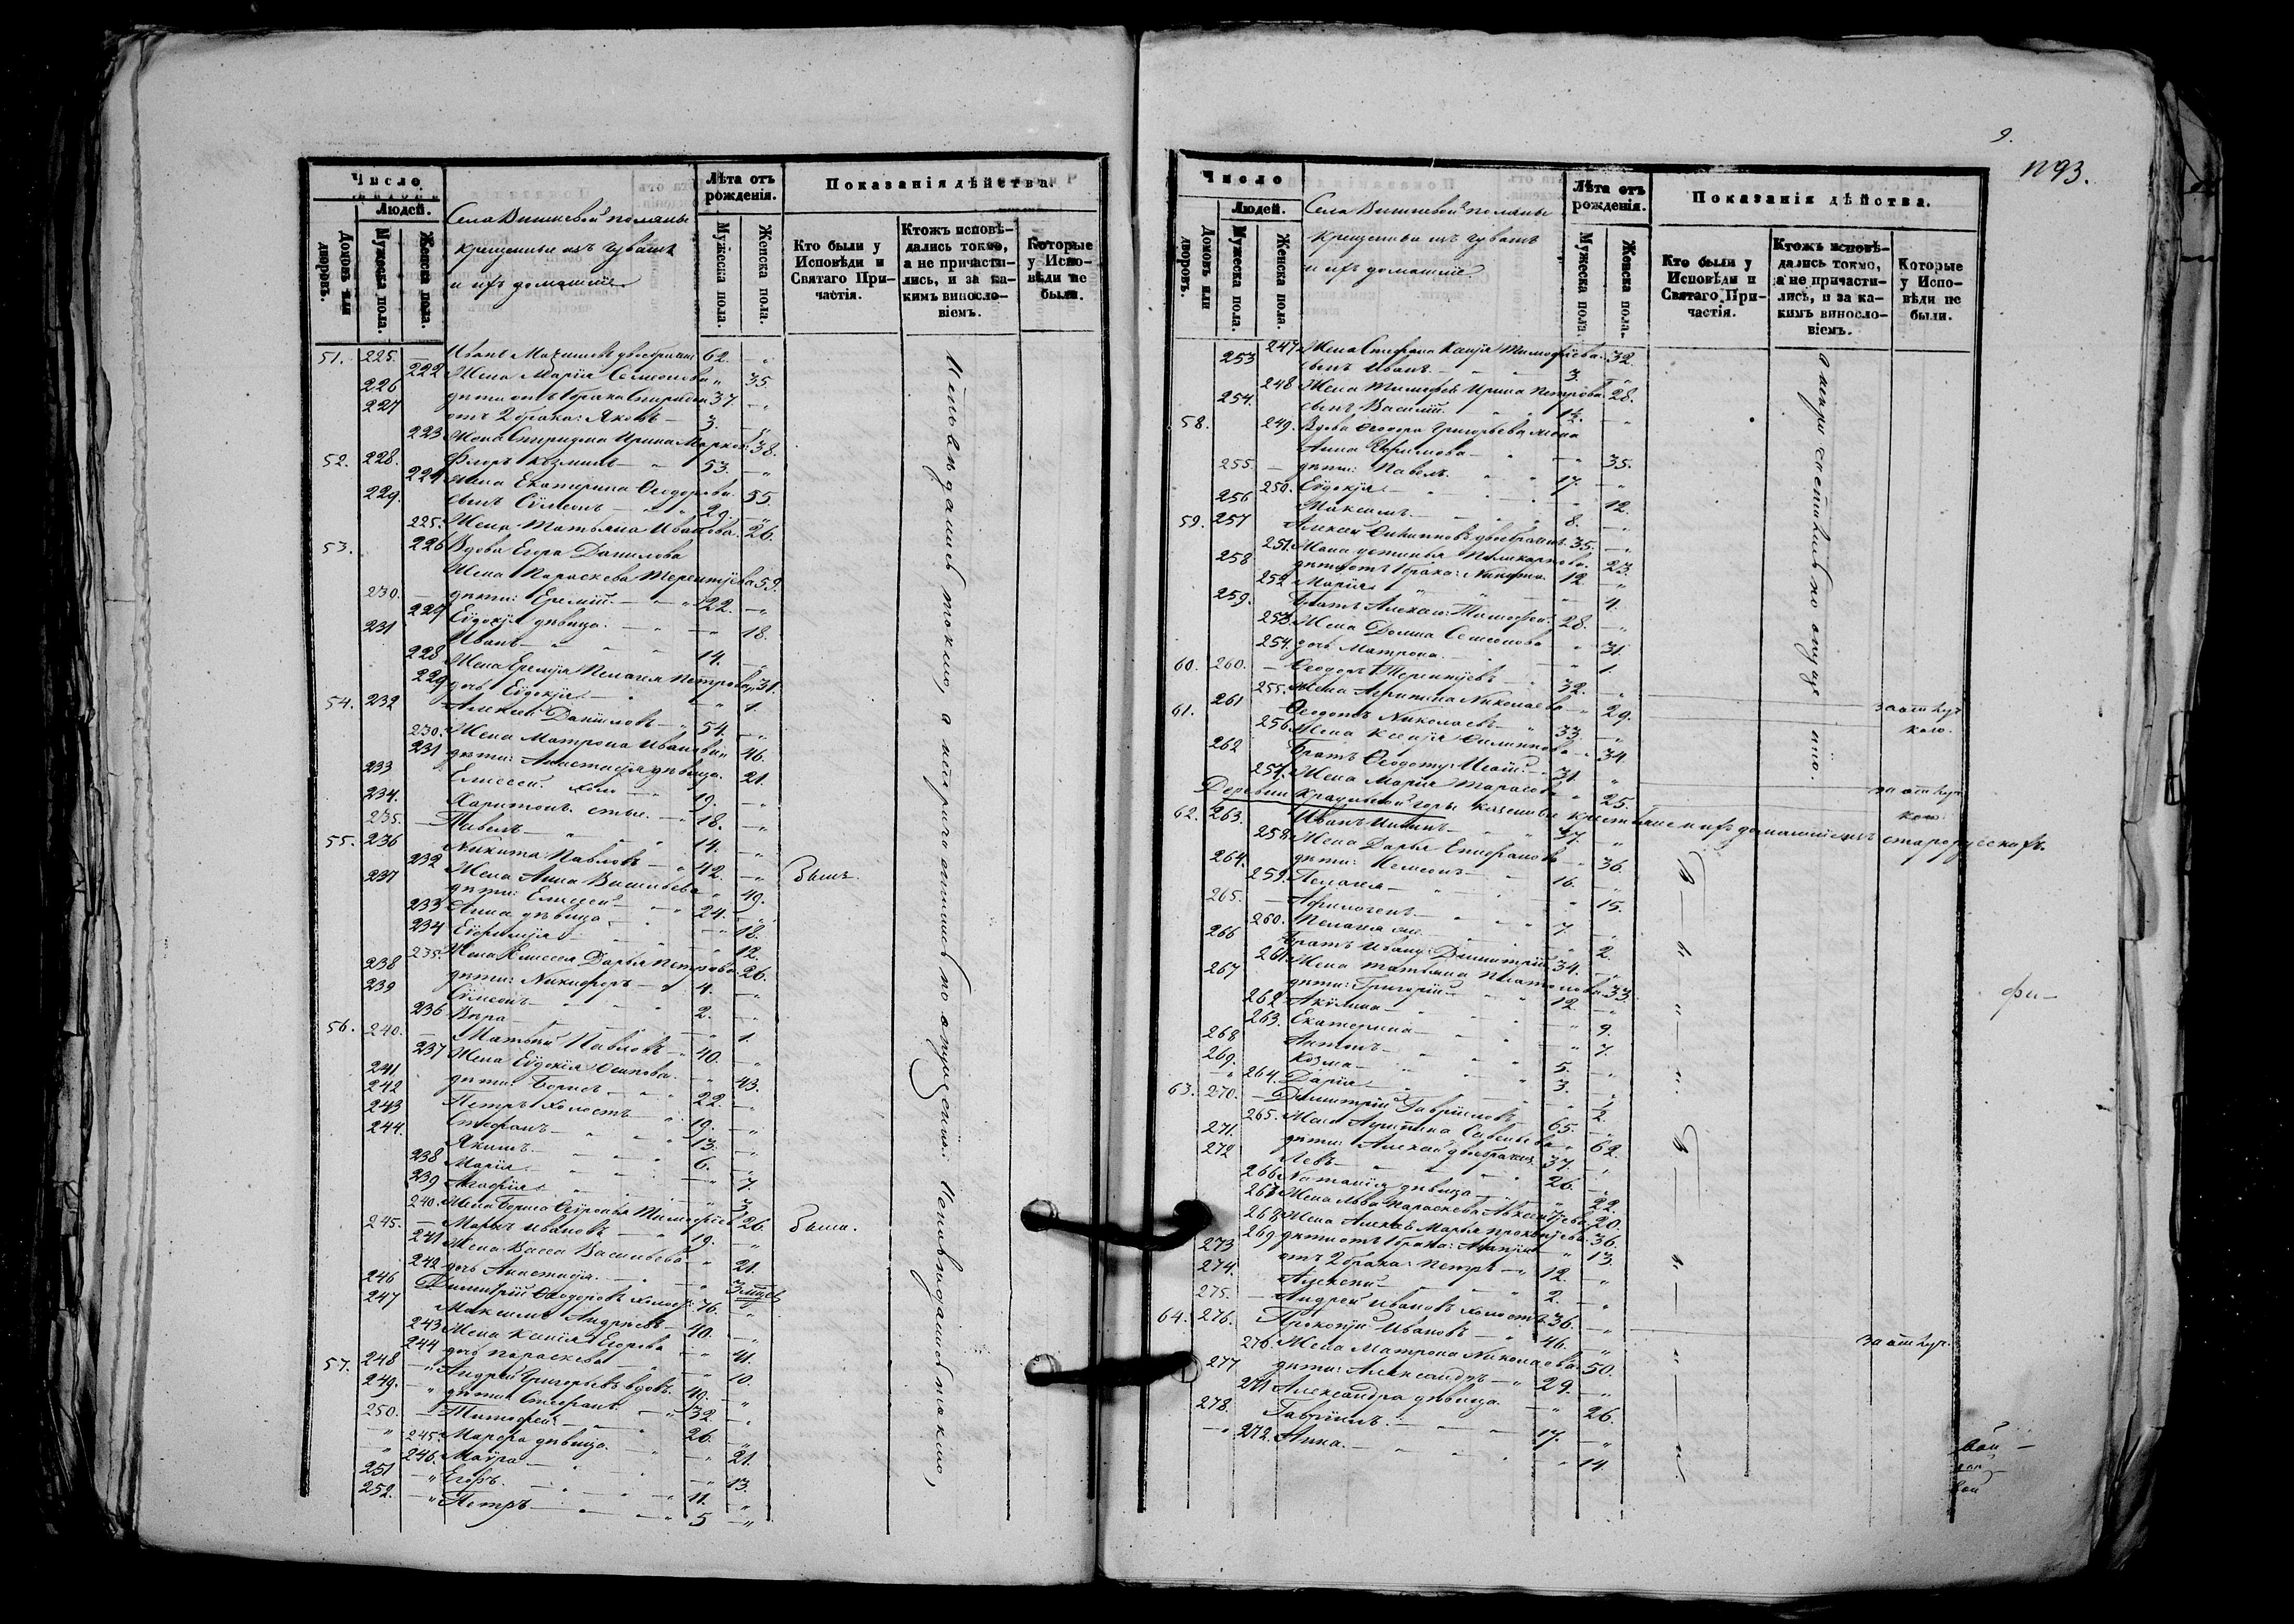 Число
Людей.
Домовъ или дворовъ.
Мужеска пола.
Женска пола.
Села Вишневой поляны
крещеныи изъ чувашъ
и ихъ домашніе
Лѣта отъ рожденія.
Мужеска пола.
Женска пола.
Показанія дѣйства.
Кто были у Исповѣди и Святаго Причастія.
Ктожъ исповѣдались токмо, а не причастились, и за какимъ винословіемъ.
Которые у Исповѣди не были.
51. 225. — Иванъ двоебрачн 62. — „
222 Жена Марія Семеонова „ 35.
226 дѣти отъ 1 брака Спиридонъ 37. — „
227 отъ 2 брака: Яковъ — 3. — „
223 Жена Спиридона Ирина Марков. 38.
52. 228. Флоръ Козминъ — „ 53. — „
224 Жена Екатерина Ѳеодорова. 55
229. сынъ Сѵмеонъ — „ 29. — „
225. Жена Татьяна Иванова. 26.
53. 226 Вдова Егора Данилова
Жена Параскева Терентіева 59.
230. — дѣти: Еремій. — „ 22. — „
227 Евдокія дѣвица. — „ 18.
231 Иванъ — „ 14. — „
228 Жена Еремія Пелагея Петрова 31.
229 дочь Евдокія — „ 1.
54. 232 Алексѣй Даниловъ — „ 54. — „
230. Жена Матрона Иванова „ 46.
231 дѣти: Анастасія дѣвица. 21.
233 Елисей. холо — „ 19. — „
234. Харитонъ. — „ 18. — „
235. — Павелъ — „ 14. — „
55. 236 Никита Павловъ — „ 42. — „ былъ.
232 Жена Анна Васильева „ 49.
237 дѣти: Елисей — „ 24. — „
233 Анна дѣвица — „ 18.
234 Евфимія — „ 12.
235. Жена Елисея Дарья Петрова 26.
238 дѣти: Никифоръ — „ 4. — „
239 Сѵмеонъ — „ 2. — „
236 Вѣра — „ 1.
56. 240. — Матвѣй Павловъ — „ 40. — „
237 Жена Евдокія Осипова. „ 43.
241. дѣти: Борисъ — „ 22. — „
242 Петръ холостъ — „ 19. — „
243 Стефанъ — „ 13. — „
244. Якимъ. — „ 6. — „
238 Марія. — „ 7.
239 Агафія — „ 3
240. Жена Бориса Тимофѣев. 26. была.
245. — Ивановъ — 19. — „
241 Жена Васса Васильева — „ 21.
242 дочь Анастасія. — „ 3 мцев
246 Димитрій Ѳеодоровъ холост. 76. „
247 Максимъ Андреевъ — 40. — „
243 Жена Ксенія Егорова „ 41.
244 дочь Параскева — „ 10.
57. 248 — Андрей Григорьевъ вдовъ. 49. — „
249. — „ дѣти Стефанъ — 32. — „
250. — Тимофей — „ 26. — „
— „ 245. Марѳа дѣвица. — „ 21.
— „ 246. Мавра — „ 13.
251 — „ Егоръ. — „ 11. „
252. — „ Петръ — „ 5 — „
Исповѣдались токмо, а не причастились по опущенію. Исповѣдались токмо,
9.
1193.
Число
Людей.
Домовъ или дворовъ.
Мужеска пола.
Женска пола.
Села Вишневой поляны
крещеныи изъ чувашъ
и ихъ домашніе
Лѣта отъ рожденія.
Мужеска пола.
Женска пола.
Показанія дѣйства.
Кто были у Исповѣди и Святаго Причастія.
Ктожъ исповѣдались токмо, а не причастились, и за какимъ винословіемъ.
Которые у Исповѣди не были.
247 Жена Стефана Ксенія Тимофѣева. 32.
253 сынъ Иванъ. — 3. „
248 Жена Тимофея Ирина Петрова 28.
254. сынъ Василій. „ — „
58. 249. Вдова Ѳеодора Григорьева жена
Анна — „ 35.
255. — дѣти: Павелъ. — „ 17. — „
250. Евдокія — „ 12.
256 Максимъ. — „ 8. — „
59. 257 Алексѣй двоебрачн. 35. — „
251. Жена Устинья Поликарпова. 23.
258 дѣти отъ 1 брака: Никита. 12 „
252 Марія „ 4.
259. Братъ Алексѣю: Тимофей. 28. — „
253. Жена Домна Семеонова „ 31.
254. дочь Матрона. — „ 1.
60. 260. — Ѳеодоръ Терентіевъ — 32. — „
255. Жена Агрипина Николаева „ 29. за отлуч
61. 261 Ѳеодотъ Николаевъ — „ 33. „ кою.
256. Жена Ксенія Филиппова „ 34.
262 Братъ Ѳеодоту: — „ 31. „
257. Жена Марія Тарасова „ 25. за отлуч
кою.
а не причастились по опущенію.
Деревни горы казенные крестьяне и ихъ домашніе изъ старорусскихъ.
62. 263. Иванъ — „ 37. „
258. Жена Дарья Епифанова — „ 36.
264. дѣти: — „ 16. — „
259. Пелагея — „ 15.
265. — — „ 7. „
260. Пелагея — „ 2.
266 Братъ Ивану: Димитрій 34. — „
261. Жена Татьяна Платонова 33.
267 дѣти: Григорій — „ 12. — „
262 Акулина — „ 9.
263. Екатерина — „ 7.
268 Антонъ — „ 5. — „
269. Козма — „ 3. — „
— „ 264. Дарія — „ 2.
63. 270. — Димитрій Гавриловъ 65. — „
265. Жена Агрипина Савельева „ 62.
271. дѣти: Алексѣй двоебрачн. 37. — „
272 Левъ — „ 26. — „
266 Наталія дѣвица — „ 22.
267 Жена Льва Параскева 20.
268 Жена Алексѣя Марья Прокопіева 36.
269 дѣти отъ 1 брака: — „ 13.
273 отъ 2 брака: Петръ — „ 12. — „
274. Алексѣй — „ 2. — „
275. — Андрей Ивановъ холостъ 36. — „
64. 276. Прокопій Ивановъ — „ 46. — „ за отлуч.
270. Жена Матрона Николаева 50.
277 дѣти: Александръ — „ 29. — „
271 Александра дѣвица. — „ 26.
278. Гавріилъ. — „ 17. — „
— „ 272. Анна. — „ 14.